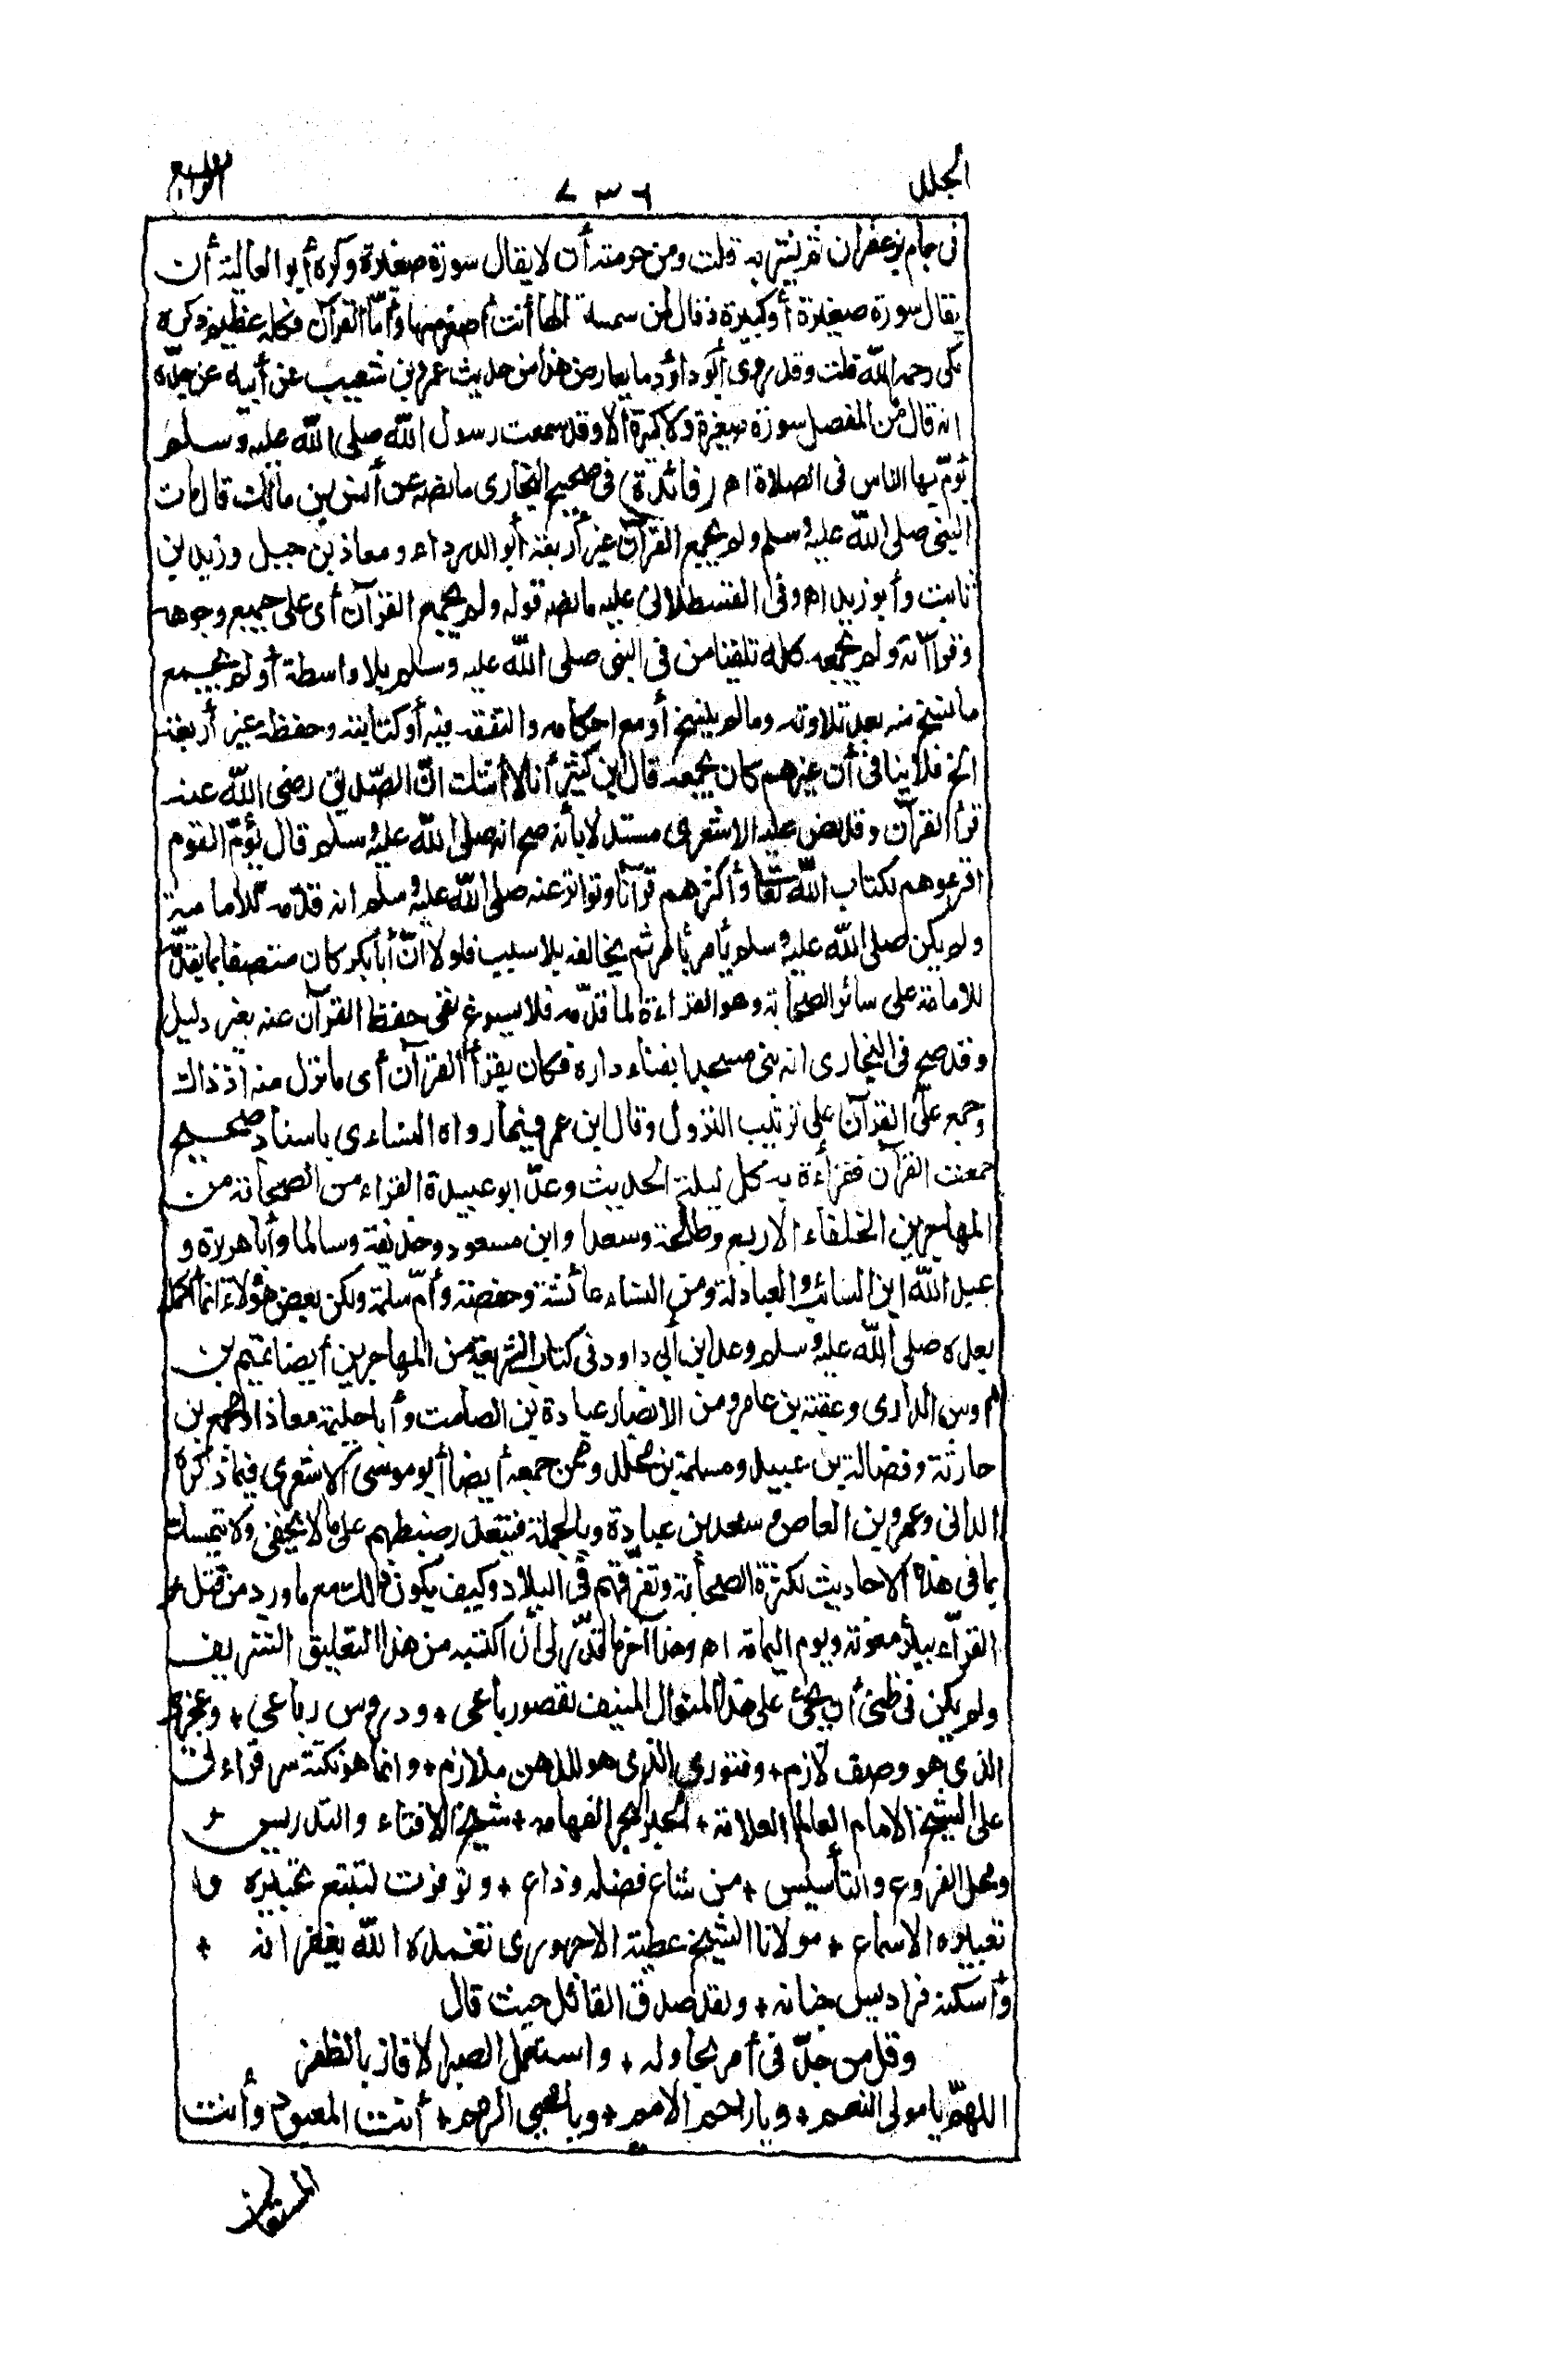 الجلد
٧٣٦
الرابع
فى جام بزعفران ثم يشربه قلت ومن حرمته أن لا يقال سورة صغيرة وكره أبو العالية أن
يقال سورة صغيرة أو كبيرة وقال لمن سمعه قالها أنت أصغر منها وأما القرآن فكله عظيم ذكره
مكى رحمه الله قلت وقد روى أبو داود ما يعارض هذا من حديث عمرو بن شعيب عن أبيه عن جدّه
انه قال من المفصل سورة صغيرة ولا كبيرة الا وقد سمعت رسول الله صلى الله عليه وسلم
يؤمّ بها الناس فى الصلاة اه (فائدة) فى صحيح البخارى ما نصه عن أنس بن مالك قال مات
النبى صلى الله عليه وسلم ولم يجمع القرآن غير أربعة أبو الدرداء ومعاذ بن جبل وزيد بن
ثابت وأبو زيد اه وفى القسطلانى عليه ما نصه قوله ولم يجمع القرآن أى على جميع وجوهه
وقراآته ولم يجمعه كله تلقينا من فى النبى صلى الله عليه وسلم بلا واسطة أو لم يجمع
ما نسخ منه بعد تلاوته وما لم ينسخ أو مع احكامه والتفقه فيه أو كتابته وحفظه غير أربعة
الخ فلا ينافى أن غيرهم كان يجمعه قال ابن كثير أنا لا أشك انّ الصّديق رضى الله عنه
قرأ القرآن وقد نص عليه الاشعرى مستدلا بأنه صح انه صلى الله عليه وسلم قال يؤمّ القوم
اقرءوهم لكتاب الله تعالى وأكثرهم قرآنا وتواتر عنه صلى الله عليه وسلم انه قدّمه للامامة
ولم يكن صلى الله عليه وسلم يأمر بأمر ثم يخالفه بلا سبب فلولا انّ أبا بكر كان متصفا بما يقدّمه
للامامة على سائر الصحابة وهو القراءة لما قدّمه فلا يسوغ نفى حفظ القرآن عنه بغير دليل
وقد صح فى البخارى انه بنى مسجدا بفناء داره فكان يقرأ القرآن أى ما نزل منه اذ ذاك
وجمع علىّ القرآن على ترتيب النزول وقال ابن عمر فيما رواه النساءى باسناد صحيح
جمعت القرآن فقرأت به كل ليلة الحديث وعدّ ابو عبيدة القراء من الصحابة من
المهاجرين الخلفاء الاربع وطلحة وسعدا وابن مسعود وحذيفة وسالما وأبا هريرة و
عبد الله ابن السائب والعبادلة ومن النساء عائشة وحفصة وأمّ سلمة ولكن بعض هؤلاء انما أكمله
بعده صلى الله عليه وسلم وعد ابن أبى داود فى كتاب الشريعة من المهاجرين أيضا تميم بن
اوس الدارى وعقبة بن عامر ومن الانصار عبادة بن الصامت وأبا حليمة معاذا ومجمع بن
حارثة وفضالة بن عبيد ومسلمة بن مخلد وممن جمعه أيضا أبو موسى الاشعرى فيما ذكره
الدانى وعمرو بن العاص وسعد بن عبادة وبالجملة فيتعذر ضبطهم على ما لا يخفى ولا يتمسك
بما فى هذه الاحاديث لكثرة الصحابة وتفرّقهم فى البلاد وكيف يكون ذلك مع ما ورد من قتل
القرّاء ببئر معونة ويوم اليمامة اه وهذا آخر ما قدّر لى أن اكتبه من هذا التعليق الشريف
ولم يكن فى ظنى أن يجئ على هذا المنوال المنيف لقصور باعى + ودروس رباعى + وعجزى
الذى هو وصف لازم + وفتورى الذى هو للذهن ملازم + وانما هو نكتة سر قراءتى
على الشيخ الامام العالم العلامة + الحبر البحر الفهامه + شيخ الافتاء والتدريس +
ومحل الفروع والتأسيس + من شاع فضله وذاع + وتوفرت لتتبع تحبيره و
تعبيره الاسماع + مولانا الشيخ عطية الاجهورى تغمده الله بغفرانه +
وأسكنه فراديس جنانه + ولقد صدق القائل حيث قال
وقل من جدّ فى أمر يحاوله + واستعمل الصبر الا فاز بالظفر
اللهمّ يا مولى النعم + ويا راحم الامم + ويا محيى الرمم + أنت المعبود وأنت